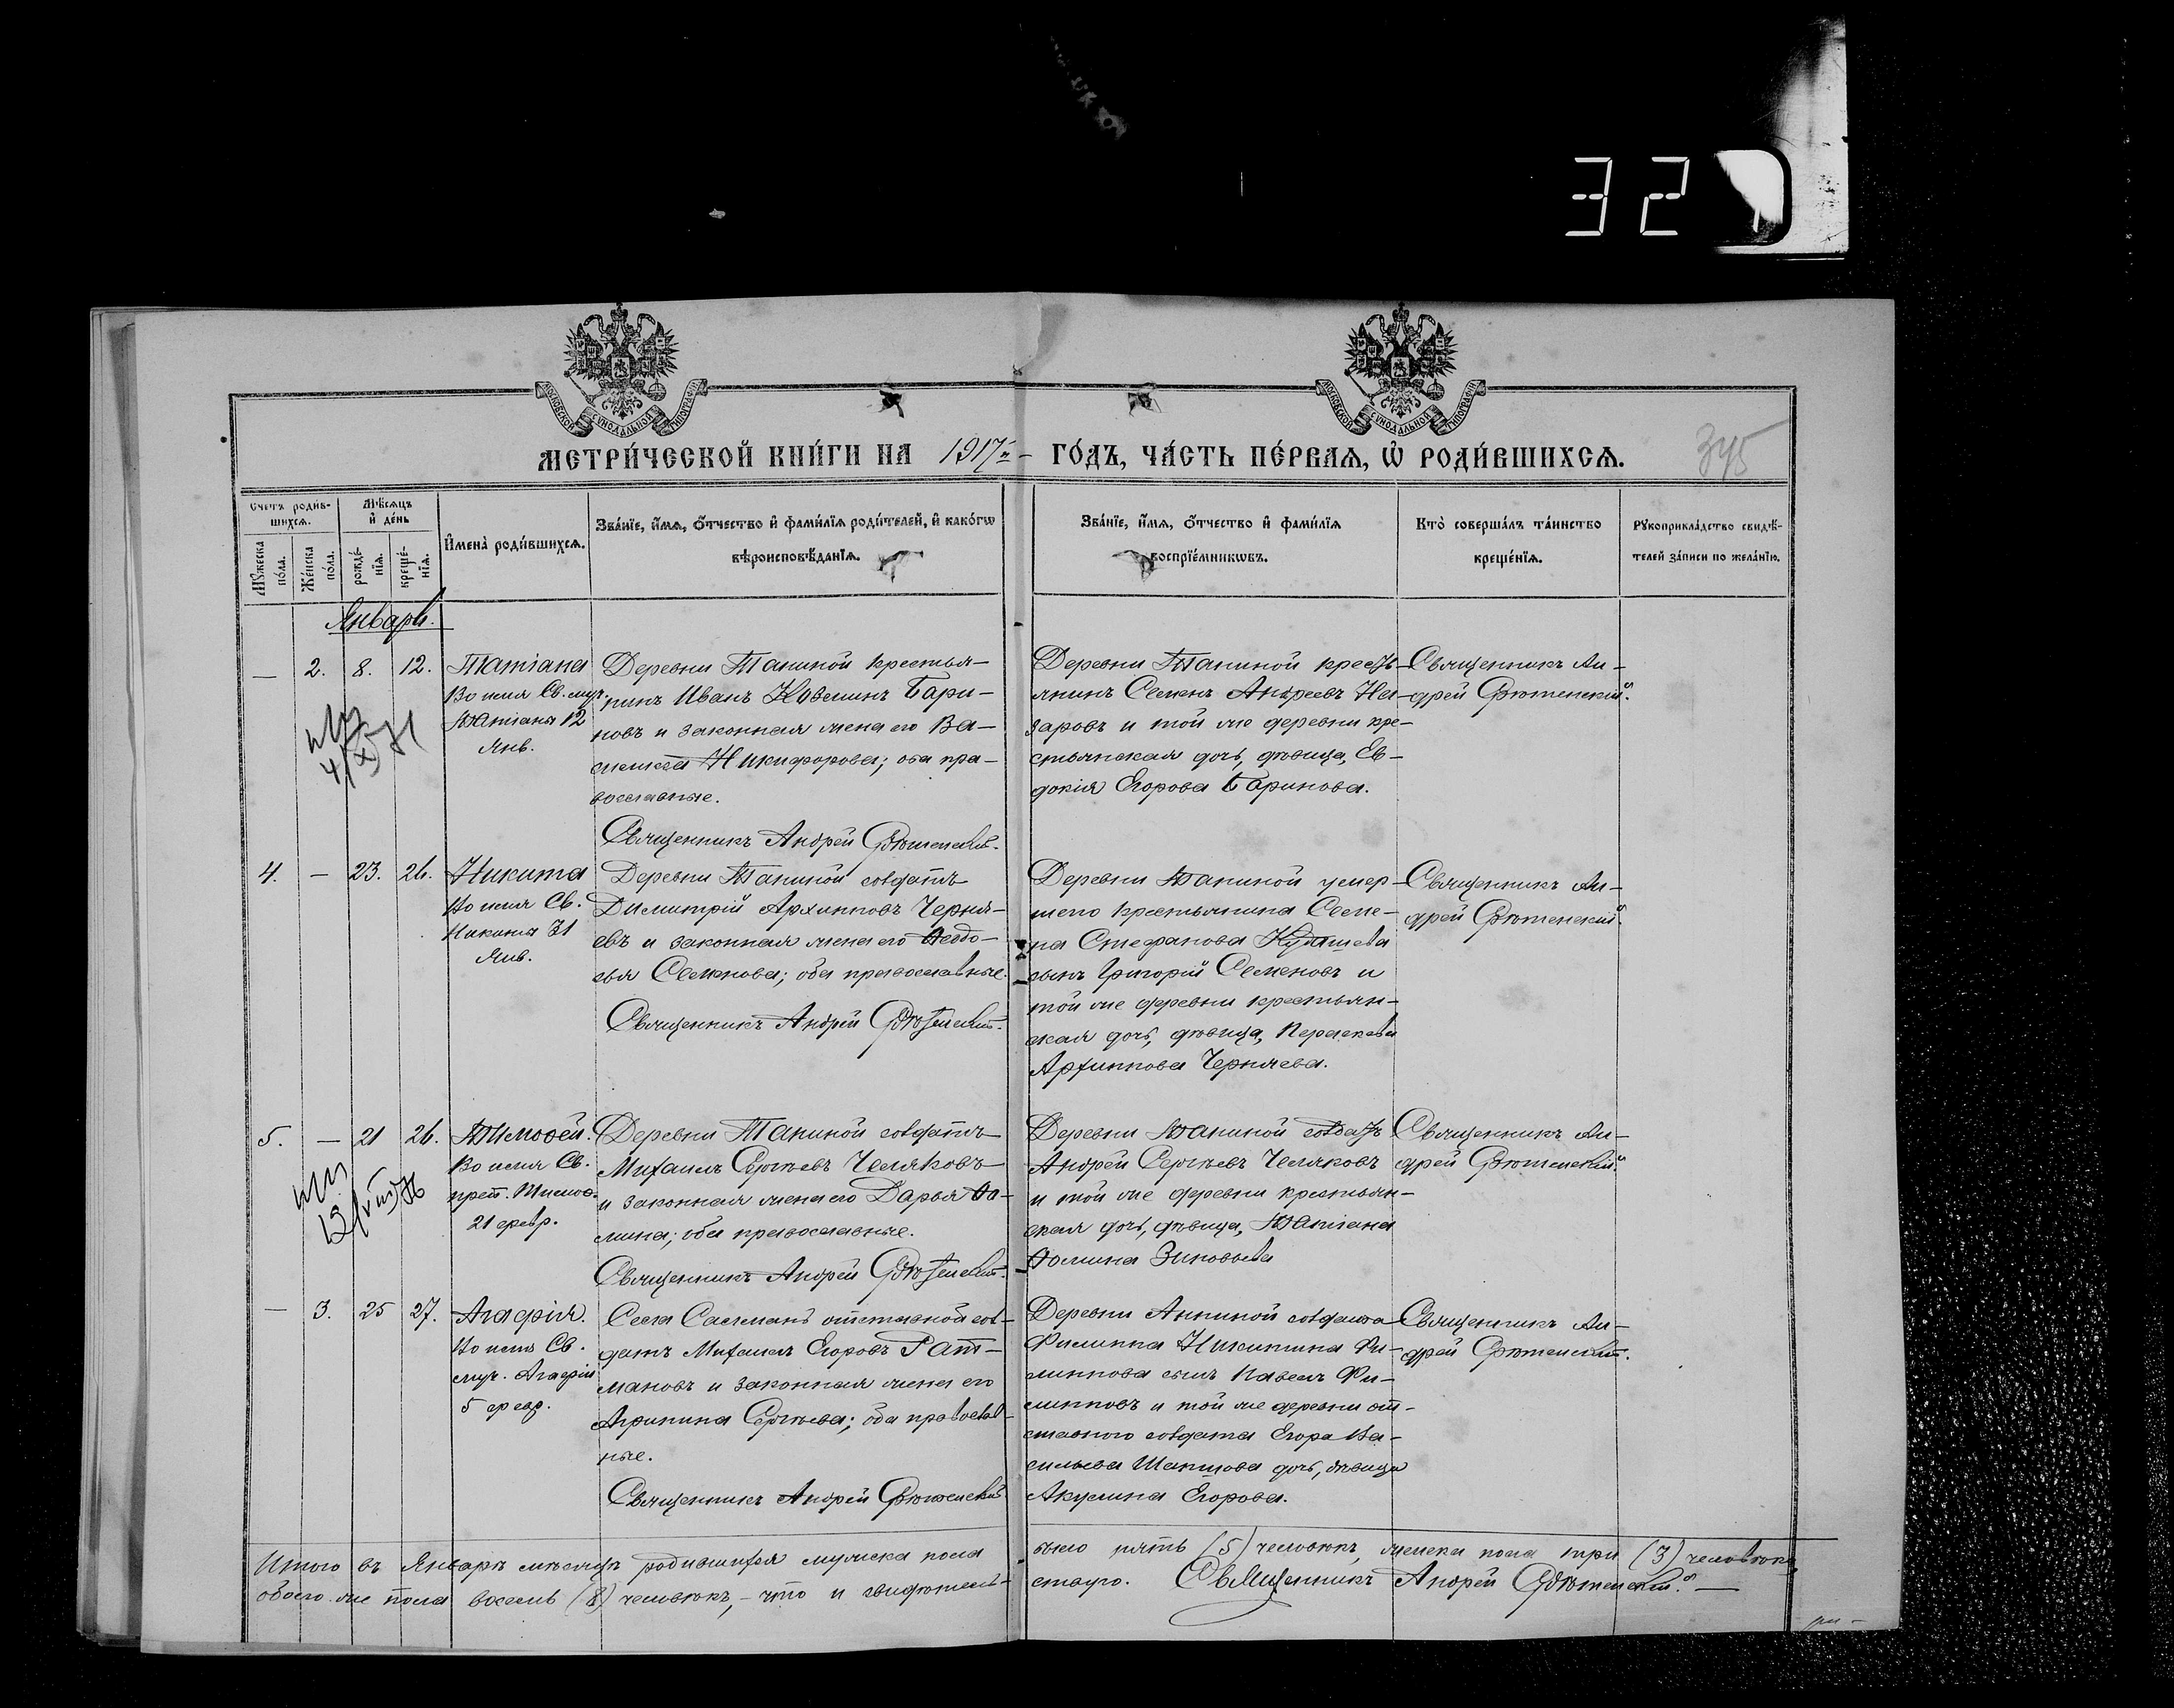 321
МОСКОВСКОЙ СѴНОДАЛЬНОЙ ТИПОГРАФІИ
МОСКОВСКОЙ СѴНОДАЛЬНОЙ ТИПОГРАФІИ
МЕТРИ́ЧЕСКОЙ КНИ́ГИ НА 1917й ГО́ДЪ, ЧА́СТЬ ПЕ́РВАѦ, Ѡ҆ РОДИ́ВШИХСѦ.
Счетъ роди́в-
шихсѧ.
Мѣ́сѧцъ
и҆ де́нь
Мꙋ́жеска
по́ла.
Же́нска
по́ла.
рожде́-
нїѧ.
креще́-
нїѧ.
И҆мена̀ роди́вшихсѧ.
Зва́нїе, и҆́мѧ, ѻ҆́тчество и҆ фами́лїѧ роди́телей, и҆ како́гѡ
вѣроисповѣ́данїѧ.
Зва́нїе, и҆́мѧ, ѻ҆́тчество и҆ фами́лїѧ
воспрїе́мникѡвъ.
Кто̀ соверша́лъ та́инство
креще́нїѧ.
Рꙋкоприкла́дство свидѣ́-
телей за́писи по жела́нїю.
Январь.
— 2. 8. 12.
Татіана
Во имя Св. муч.
Татіаны 12
Янв.
Деревни Таниной крестья-
нинъ Иванъ Бари-
новъ и законная жена его Ва-
Никифорова; оба пра-
вославные.
Священникъ Андрей
Деревни Таниной кресть-
янинъ Семенъ Андреевъ На-
заровъ и той же деревни кре-
стьянская дочь, дѣвица, Ев-
докія Егорова Баринова.
Священникъ Ан-
дрей
4. — 23. 26.
Никита
Во имя Св.
Никиты 31
Янв.
Деревни Таниной солдатъ
Димитрій Архипповъ Черня-
евъ и законная жена его Ѳеодо-
сья Семенова; оба православные.
Священникъ Андрей
Деревни Таниной умер-
шего крестьянина Семе-
на Стефанова
сынъ Григорій Семеновъ и
той же деревни крестьян-
ская дочь, дѣвица, Параскева
Архиппова Черняева.
Священникъ Ан-
дрей
5. — 21 26.
Тимоѳей.
Во имя Св.
преп. Тимоѳ.
21 февр.
Деревни Таниной солдатъ
Михаилъ Сергѣевъ Челяковъ
и законная жена его Дарья Ѳо-
мина; оба православные.
Священникъ Андрей
Деревни Таниной солдатъ
Андрей Сергѣевъ Челяковъ
и той же деревни крестьян-
ская дочь, дѣвица, Татіана
Ѳомина Зиновьева
Священникъ Ан-
дрей
— 3. 25 27.
Агафія.
Во имя Св.
муч. Агафіи
5 февр.
Села отставной сол-
датъ Михаилъ Егоровъ Рат-
мановъ и законная жена его
Агрипина Сергѣева; оба православ-
ные.
Священникъ Андрей
Деревни Аниной солдата
Филиппа Никитина Фи-
липпова сынъ Павелъ Фи-
липповъ и той же деревни от-
ставного солдата Егора Ва-
сильева дочь, дѣвица
Акулина Егорова.
Священникъ Ан-
дрей
Итого въ Январѣ мѣсяцѣ родившихся мужеска пола было пять (5) человѣкъ, женска пола три (3) человѣка,
обоего же пола восемь (8) человѣкъ, — что и свидѣтель- ствую. Священникъ Андрей